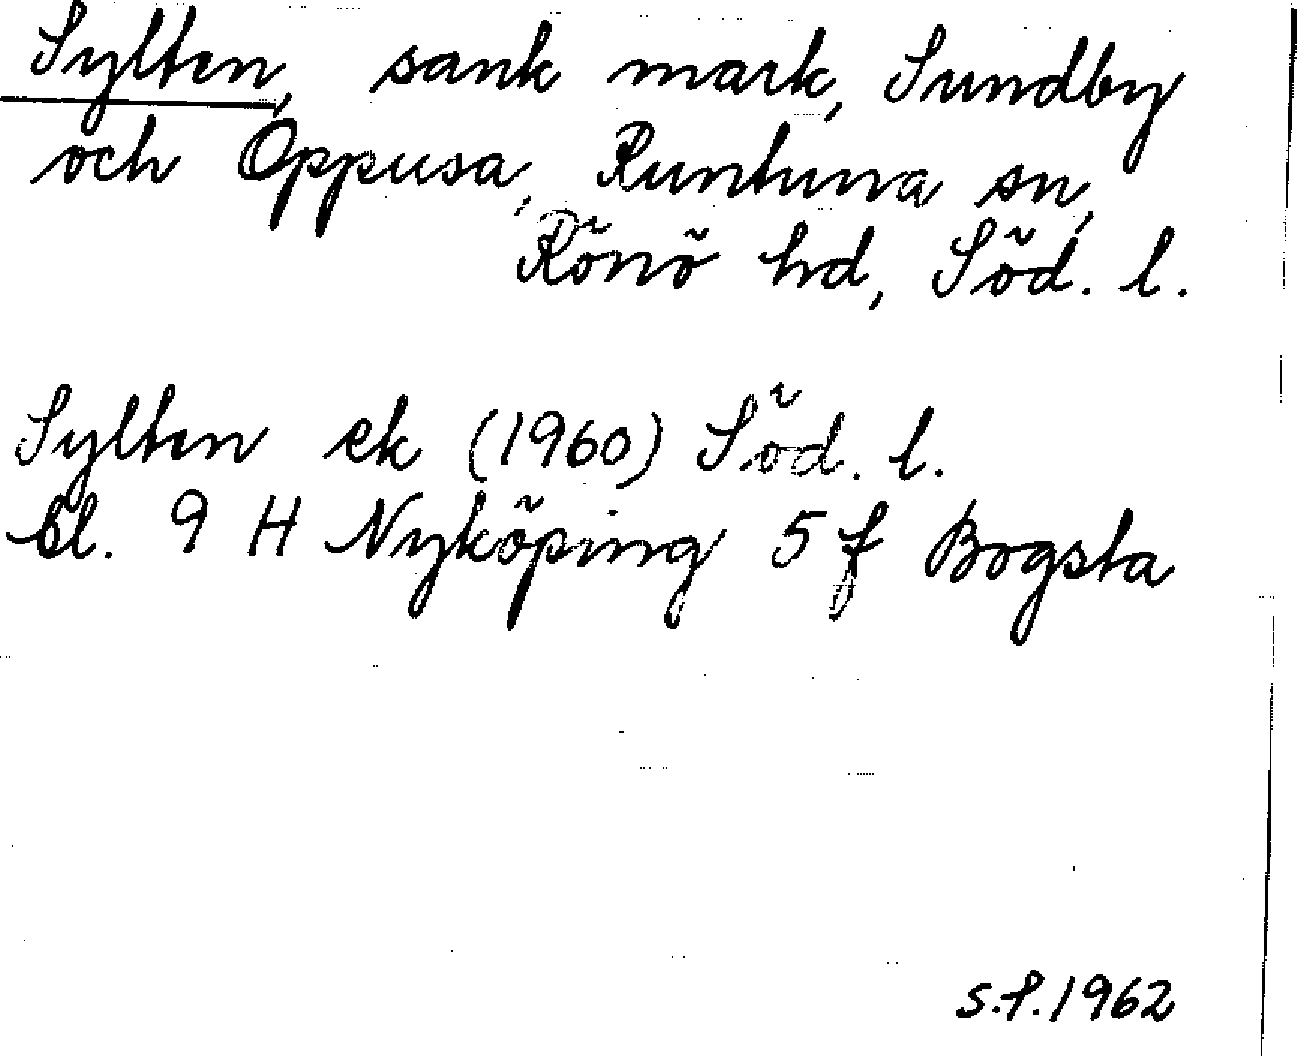 Sylten, sank mark, Sundby
och Oppusa, Runtuna sn,
Rönö hd, Söd. l.
Sylten ek (1960) Söd. l.
bl. 9 H Nyköping 5 f Bogsta
s.f. 1962